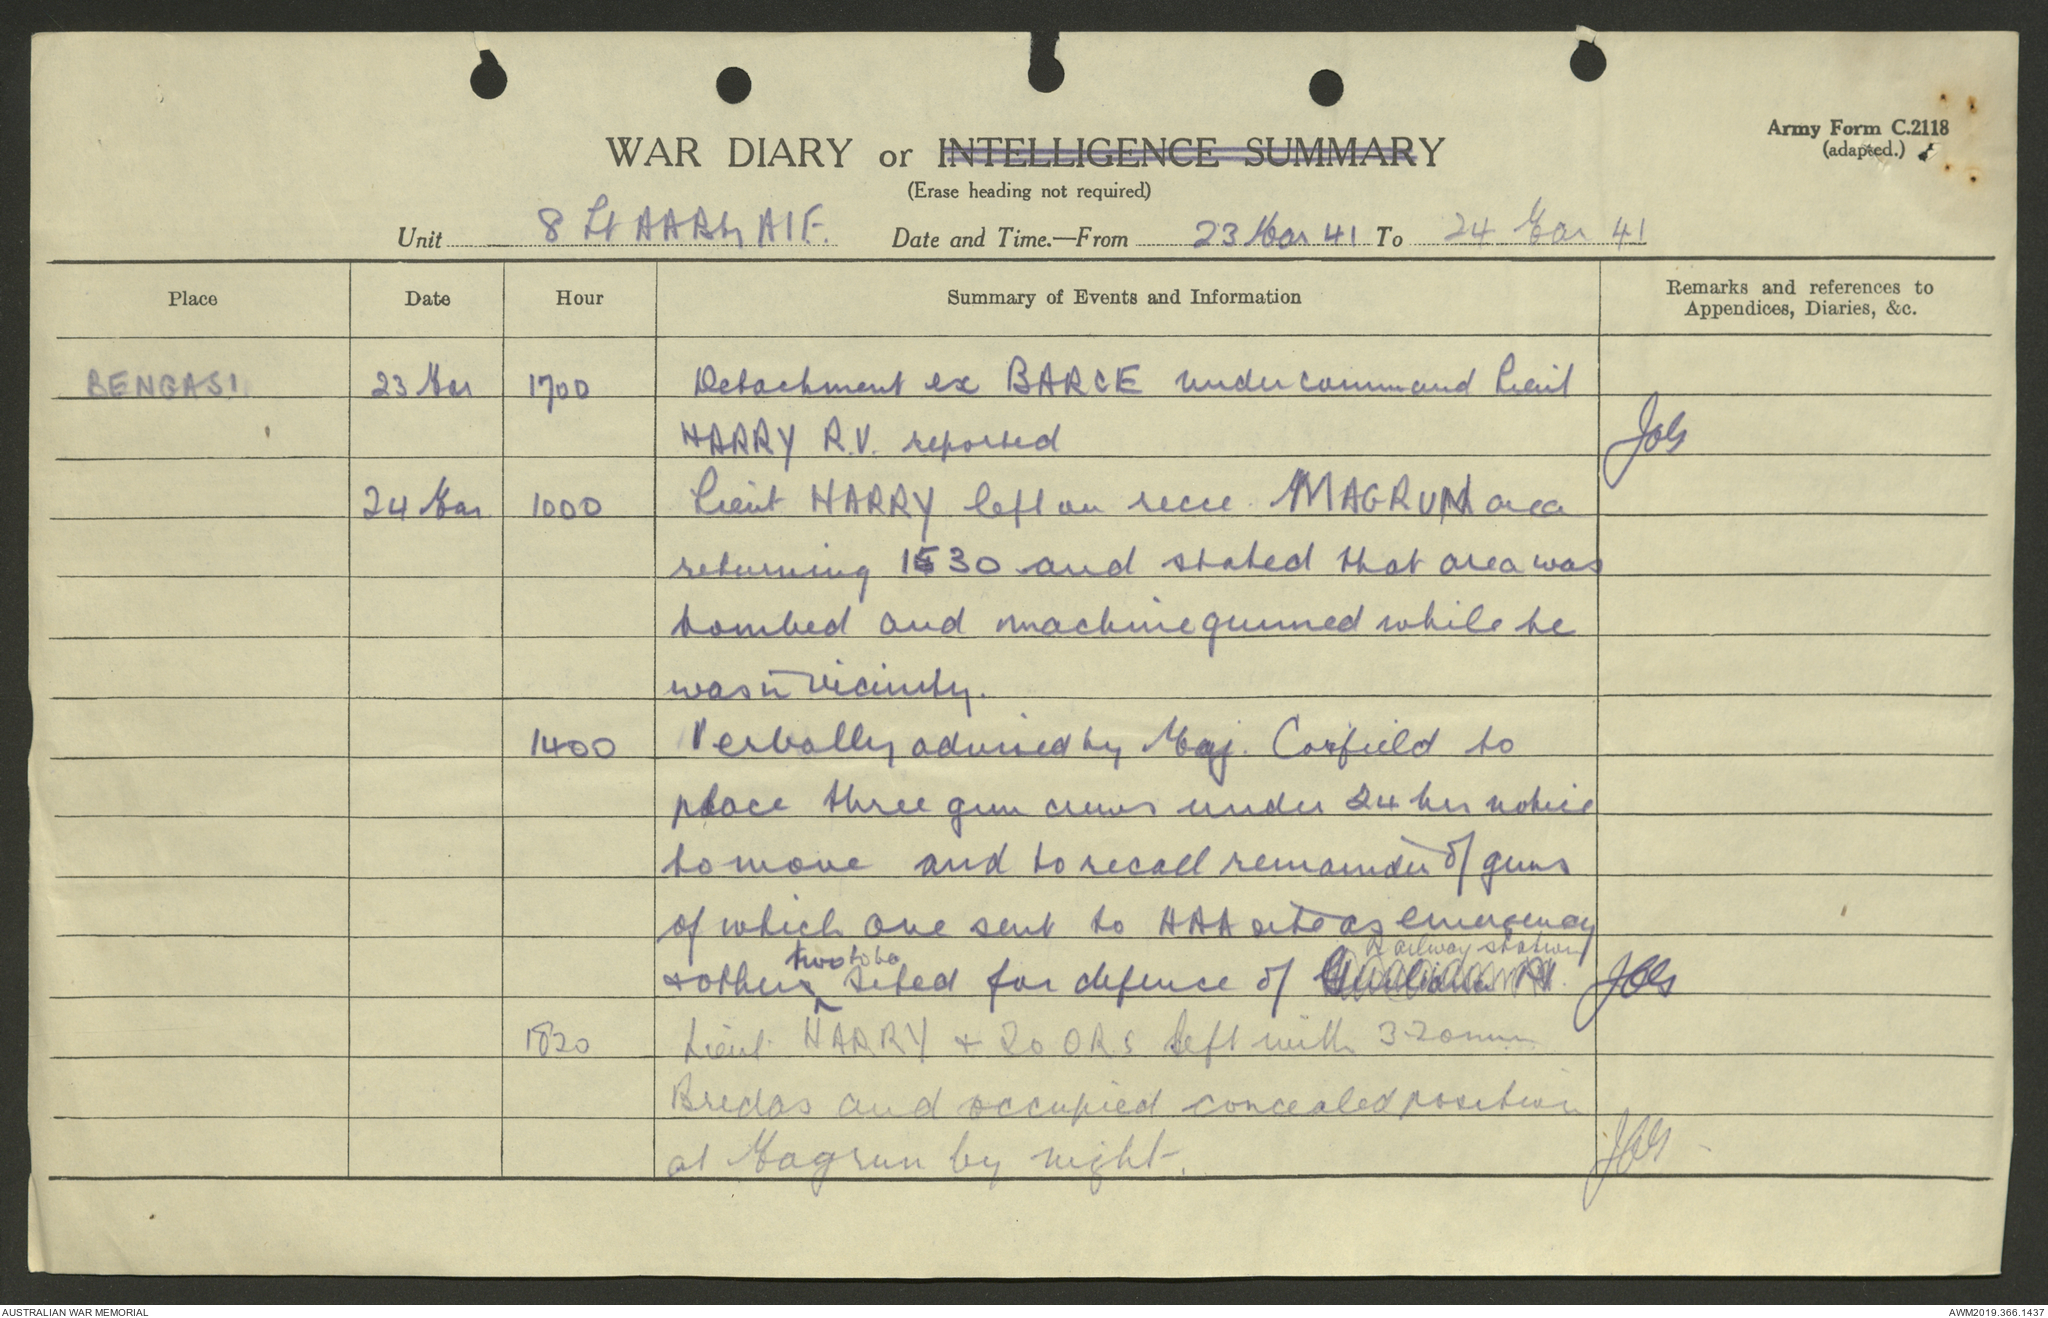 Army Form C.2118
(adapted.)
WAR DIARY or INTELLIGENCE SUMMARY
(Erase heading not required)
Unit 8 Lt AA Bty AIF. Date and Time.—From 23 Mar 41 To 24 Mar 41
Place Date Hour Summary of Events and Information Remarks and references to Appendices, Diaries, &c.
BENGASI 23 Mar 1700 Detachment ex BARCE under command Lieut
HARRY R.V. reported
24 Mar 1000 Lieut HARRY left on recce MAGRUN area
returning 1530 and stated that area was
bombed and machine gunned while he
was in vicinity.
1400 Verbally advised by Maj. Corfield to
place three gun crews under 24 hrs notice
to move and to recall remainder of guns
of which one sent to HAA site as emergency
Railway station
two to be
& others sited for defence of
1820 Lieut. HARRY & 20 ORs left with 3 20mm
Bredas and occupied concealed position
at Magrun by night.
AUSTRALIAN WAR MEMORIAL
AWM2019.366.1437